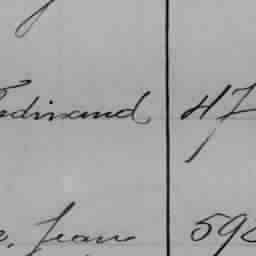 erdinand 47
e, Jean 59